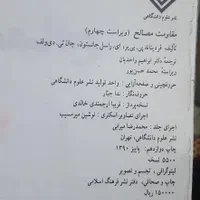 نشر علوم دانشگاهی
مقاومت مصالح (ویراست چهارم)
تألیف فردیناند پی. بی‌یر، ئی. راسل جانستون، جان تی. دی‌ولف
ترجمهٔ دکتر ابراهیم واحدیان
ویراستهٔ محمد حسن‌پور
حروفچینی و صفحه‌آرایی: واحد تولید نشر علوم دانشگاهی
حروف‌نگار: ندا جبار
نسخه‌پرداز: فریبا ارجمندی خالدی
اجرای تصاویر اسکنری: نوشین میرسیب
اجرای جلد: محمدرضا میرانی
نشر علوم دانشگاهی، تهران
چاپ دوازدهم: پاییز ۱۳۹۰
۵۵۰۰ نسخه
لیتوگرافی، تجسم و تصویر
چاپ و صحافی، دفتر نشر فرهنگ اسلامی
۱۵۰۰۰۰ ریال